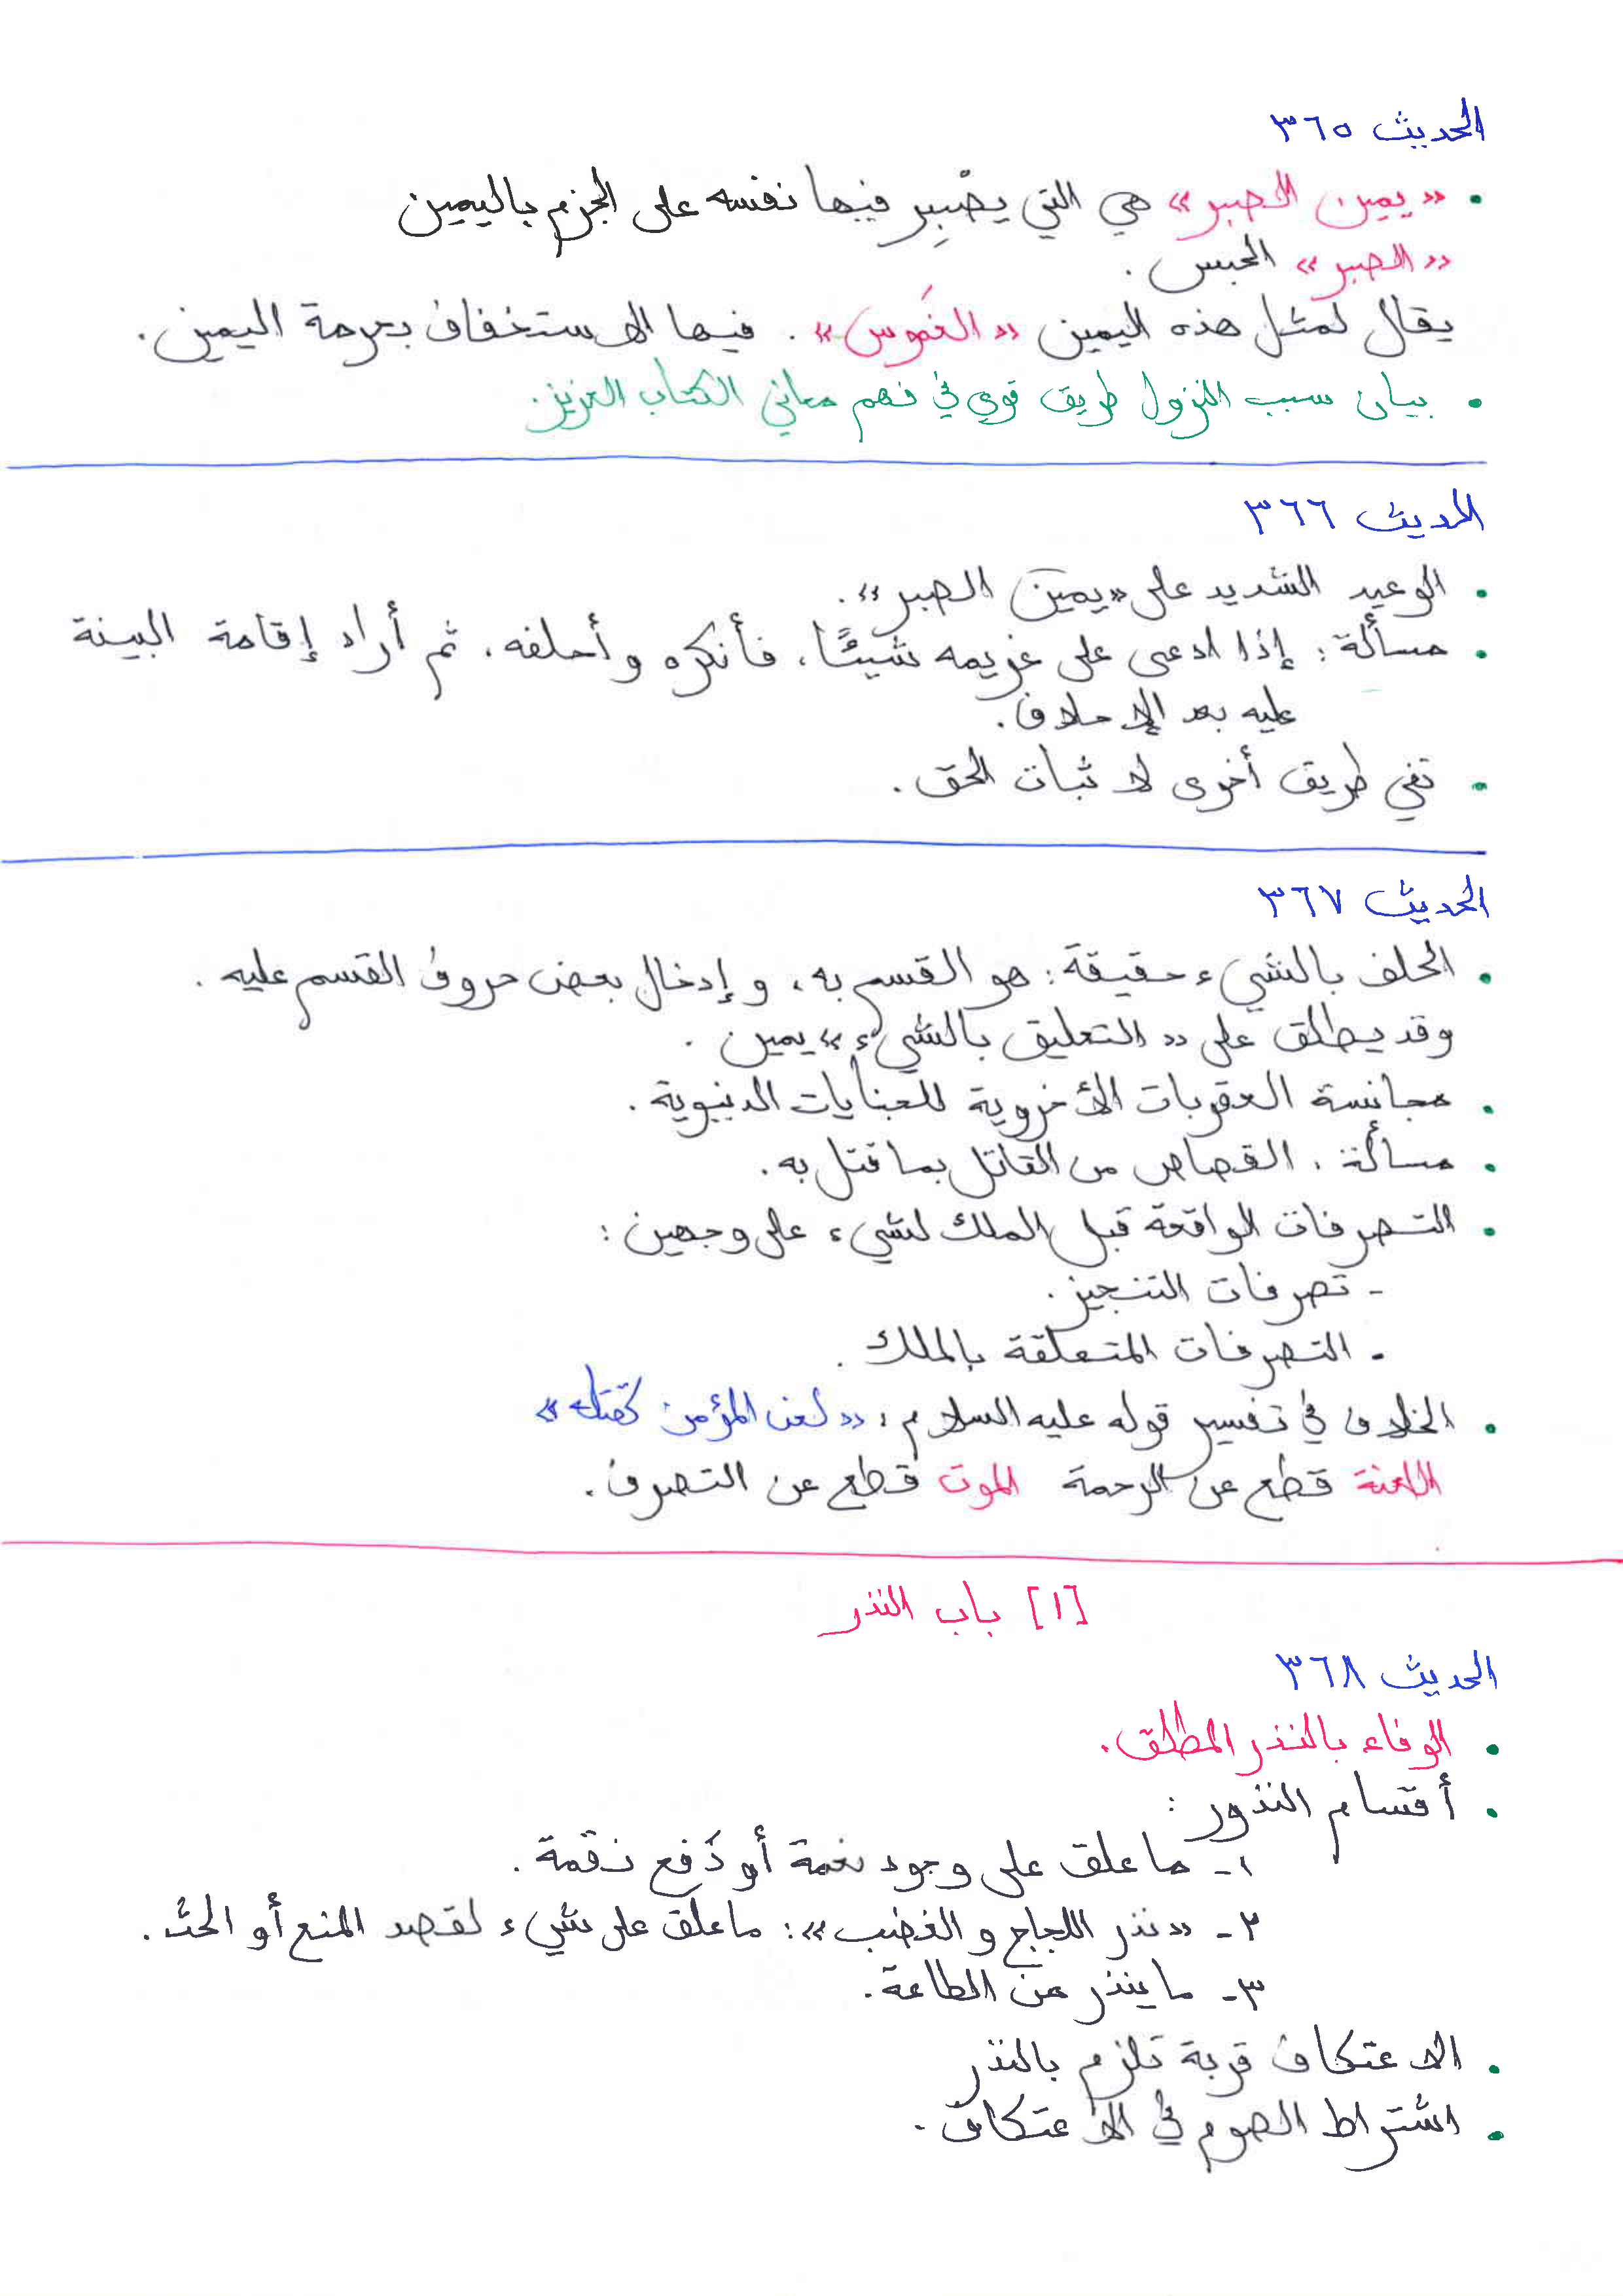 الحديث ٣٦٥
• «يمين الصبر» هي التي يصْبِر فيها نفسه على الجزم باليمين
«الصبر» الحبس.
يقال لمثل هذه اليمين «الغَموس». فيها الاستخفاف بحرمة اليمين.
• بيان سبب النزول طريق قوي في فهم معاني الكتاب العزيز.
الحديث ٣٦٦
• الوعيد الشديد على «يمين الصبر».
• مسألة: إذا ادعى على غريمه شيئًا، فأنكره وأحلفه، ثم أراد إقامة البينة
عليه بعد الإحلاف.
• تفي طريق أخرى لاثبات الحق.
الحديث ٣٦٧
• الحلف بالشيء حقيقة: هو القسم به، وإدخال بعض حروف القسم عليه.
وقد يطلق على «التعليق بالشيء» يمين.
• مجانسة العقوبات الأخروية للجنايات الدنيوية.
• مسألة: القصاص من القاتل بما قتل به.
• التصرفات الواقعة قبل الملك لشيء على وجهين:
- تصرفات التنجيز.
- التصرفات المتعلقة بالملك.
• الخلاف في تفسير قوله عليه السلام: «لعن المؤمن كقتله»
اللعنة قطع عن الرحمة الموت قطع عن التصرف.
[١] باب النذر
الحديث ٣٦٨
• الوفاء بالنذر المطلق.
• أقسام النذور:
١- ما علق على وجود نعمة أو دَفع نقمة.
٢- «نذر اللجاج والغضب»: ما علق على شيء لقصد المنع أو الحث.
٣- ما ينذر من الطاعة.
• الاعتكاف قربة تلزم بالنذر
• اشتراط الصوم في الاعتكاف.